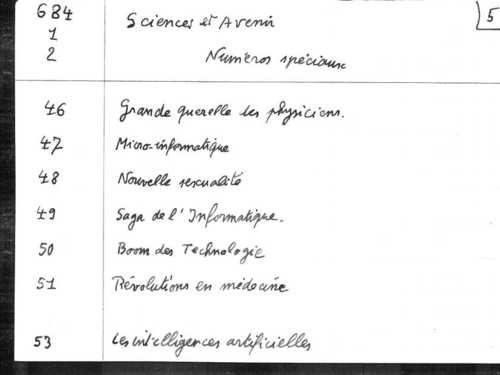 684 Sciences et Avenir 5
1
2 Numéros spéciaux
46 Grande querelle des physiciens.
47 Micro-informatique
48 Nouvelle sexualité
49 Saga de l'Informatique.
50 Boom des Technologie
51 Révolutions en médecine
53 Les intelligences artificielles